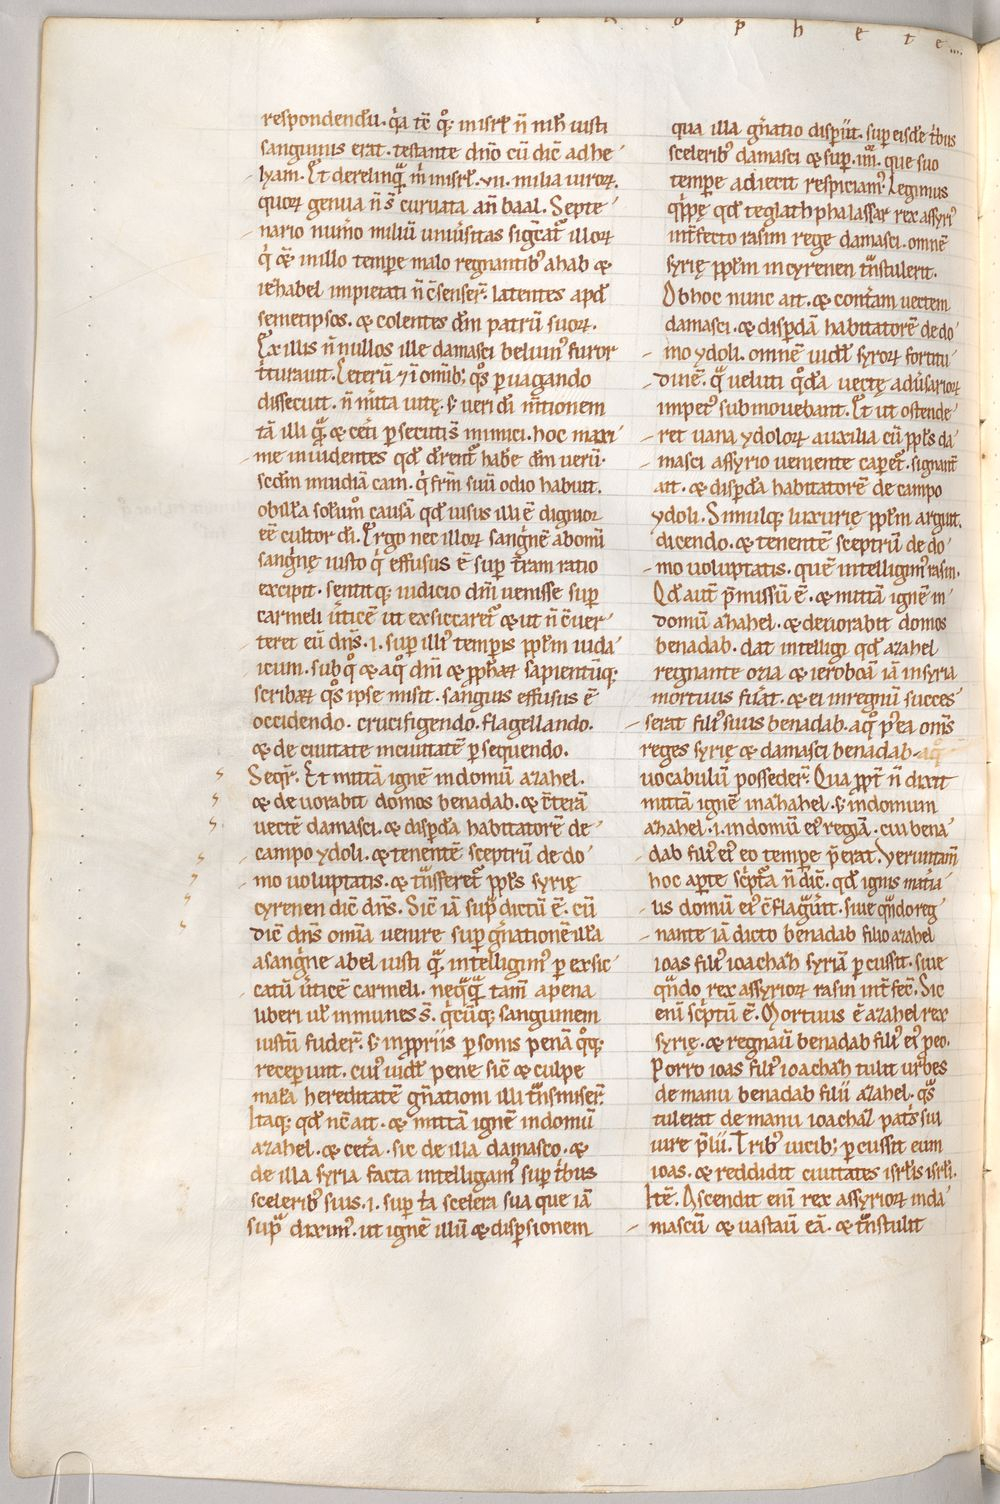 p h e t e
respondendū. q̇a tc̄ q̊. inisrl̄ n̄ nih̄ iusti
sanguinis erat. testante dn̄o cū dic̄ adhe
lyam. Et derelinq̄ m̄ inisrl̄. vii. milia uiroꝝ.
quoꝝ genua n̄ s̄ curuata an̄ baal. Septe
nario num̄o miliū uniūsitas sigc̄at̄ illoꝝ
q̇ q̄ inillo tempe malo regnantib᾽ ahab &
iezhabel impietati n̄ c̄senser̄. latentes apd̄
semetipsos. & colentes dm̄ patrū suoꝝ.
Ex illis n̄ nullos ille damasci beluin᾽ furor
t̄turauit. Ceterū ⁊ ī omīb; q̊s puagando
dissecuit. n̄ m̄ita uitę. s; ueri dī m̄tionem
tā illi q̄ & cet̄i psecutis̄ inimici. hoc maxi
me inuidentes qd̄ dr̄ent̄ habe dm̄ uerū.
scd̄m inuidiā cain. q̇ fr̄m suū odio habuit.
obill̄a solum̄ causā qd̄ iusus illi ē dignior
eē cultor dī. Ergo nec illoꝝ sanġnē abomī
sanġnę iusto q̇ effusus ē sup t̄ram ratio
excipit. sentitq; iudicio dnī uenisse sup
carmeli ūticē ut exsiccaret̄ & ut n̄ c̄uer
teret eū dn̄s. i. sup illi᾽ tempis ppl̄m iuda
icum. sub q̊ & aq̊ dnī & pph̄aꝝ sapientūq;
scribaꝝ q̊s ipse misit. sanguis effusus ē
occidendo. crucifigendo. flagellando.
& de ciuitate inciuitatē psequendo.
Seqr̄. Et mittā ignē indomū azahel.
& deuorabit domos benadab. & c̄terā
uectē damasci. & dispdā habitatorē de
campo ydoli. & tenentē sceptrū de do
mo uoluptatis. & tn̄sferet̄ ppl̄s syrię
cyrenen dic̄ dn̄s. Sic̄ iā sup̄ dictū ē. cū
dic̄ dn̄s omīa uenire sup gn̄ationē ill̄a
asanġne abel iusti q̄ intelligim᾽ p exsic
catū ūticē carmeli. neq̄q̄ tam̄ apena
liberi ul̄ inmunes s̄. q̇cūq; sanguinem
iustū fuder̄. s; inpp̄riis psonis penā q̊q;
recepunt. cui᾽ uidl̄ pene sic̄ & culpe
mala hereditatē gn̄ationi illi tn̄smiser̄.
Itaq; qd̄ nc̄ ait. & mittā ignē indomū
azahel. & cet̄a. sic de illa damasco. &
de illa syria facta intelligam᾽ sup t̄bus
scelerib᾽ suis. i. sup t̄a scelera sua que iā
sup̄ dixim᾽. ut ignē illū & dispsionem
qua illa gn̄atio dispiit. sup eisdē t̄bus
scelerib᾽ damasci & sup. iiii. que suo
tempe adiecit respiciam᾽. Legimus
q̇ppę qd̄ teglathphalassar rex assyr᾽
int̄fecto rasin rege damasci. omnē
syrię ppl̄m incyrenen tn̄stulerit.
Obhoc nunc ait. & contām uectem
damasci. & dispdā habitatorē de do
mo ydoli. omnē uidl̄ syroꝝ fortitu
dinē. q̄ ueluti q̊da uectę adūsarioꝝ
impet᾽ submouebant. Et ut ostende
ret uana ydoloꝝ auxilia cū ppl̄s da
masci assyrio ueniente capet̄. signant̄
ait. & dispdā habitatorē de campo
ydoli. Simulq; luxurię ppl̄m arguit.
dicendo. & tenentē sceptrū de do
mo uoluptatis. quē intelligim᾽ rasin.
Qd̄ aut̄ p̄missū ē. & mittā ignē in
domū azahel. & deuorabit domos
benadab. dat intelligi qd̄ azahel
regnante ozia & ieroboā iā insyria
mortuus fuāt. & ei inregnū succes
serat fili᾽ suus benadab. aq̊ p᾽ea omīs
reges syrię & damasci benadab. aq̊
vocabulum posseder̄. Quapp̄t n̄ dixit
mittā ignē inazahel. s; indomum
azahel. i. indomū ei᾽ regiā. cui bena
dab fili᾽ ei᾽ eo tempe p̄erat. Veruntam̄
hoc apte sc̄pta n̄ dic̄. qd̄ ignis mat̄ia
lis domū ei᾽ c̄flaḡuit. siue qn̄do reg
nante iā dicto benadab filio azahel
ioas fili᾽ ioachah syriā pcussit. siue
qn̄do rex assyrioꝝ rasin int̄fec̄. Sic
enī sc̄ptū ē. Mortuus ē azahel rex
syrię. & regnaū benadab fili᾽ ei᾽ p eo.
Porro ioas fili᾽ ioachah tulit urbes
de manu benadab filii azahel. q̄s
tulerat de manu ioachaz pat̄s sui
iure p̄lii. Trib᾽ uicib; pcussit eum
ioas. & reddidit ciuitates isrl̄is isrl̄i.
Itē. Ascendit enī rex assyrioꝝ inda
mascū & uastaū eā. & tn̄stulit